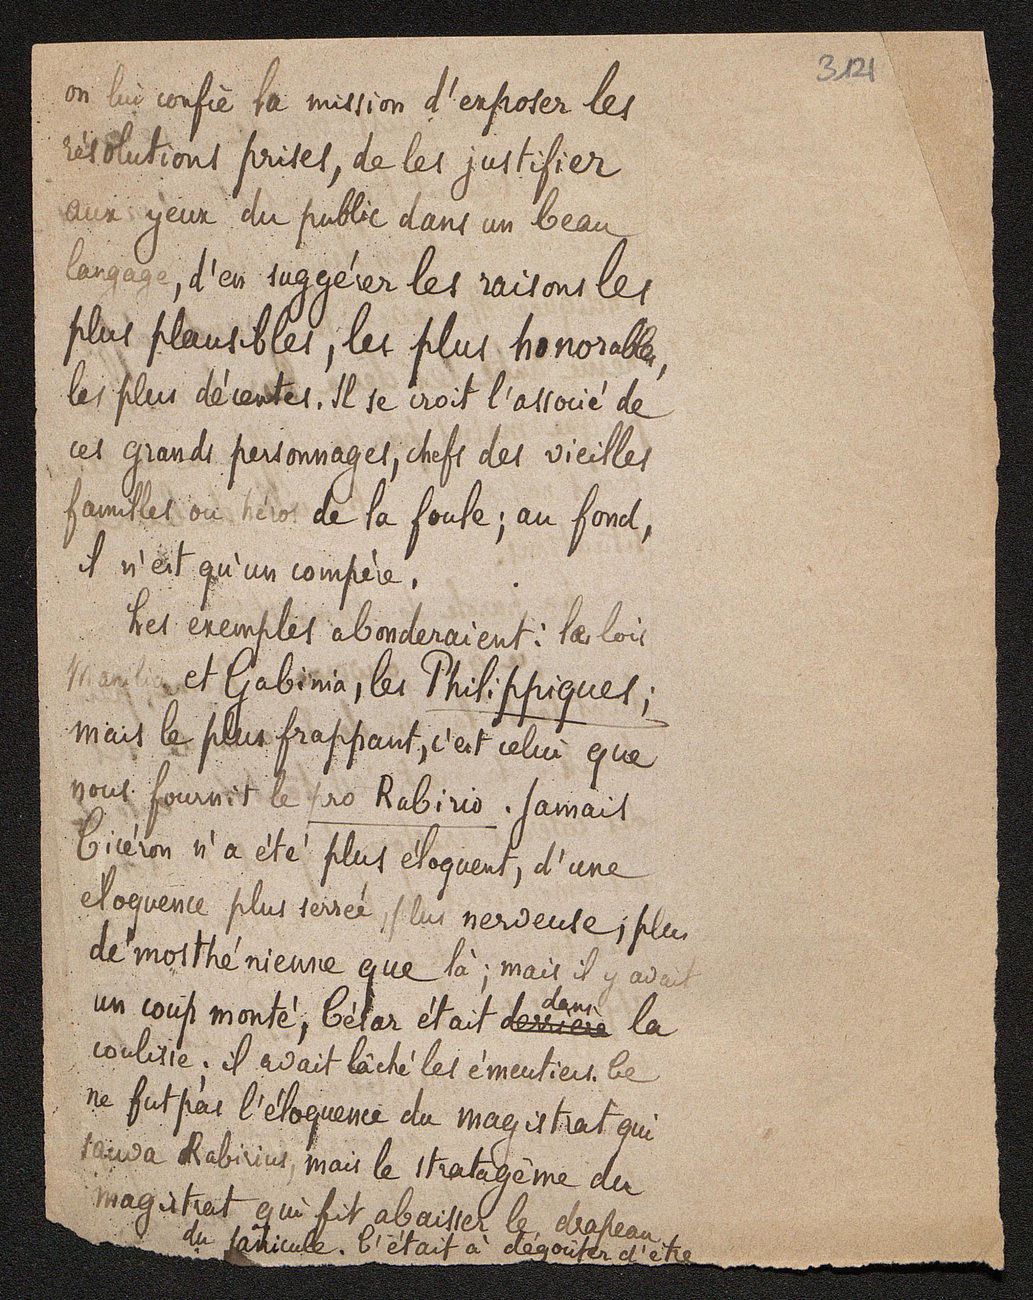 3121
on lui confie la mission d'exposer les
résolutions prises, de les justifier
aux yeux du public dans un beau
langage, d'en suggérer les raisons les
plus plausibles, les plus honorables,
les plus décentes. Il se croit l'associé de
ces grands personnages, chefs des vieilles
familles ou héros de la foule ; au fond,
il n'est qu'un compère.
Les exemples abonderaient : les lois
Manilia et Gabinia, les Philippiques ;
mais le plus frappant, c'est celui que
nous fournit le pro Rabirio. Jamais
Cicéron n'a été plus éloquent, d'une
eloquence plus serrée, plus nerveuse, plus
démosthénienne que là ; mais il y avait
un coup monté, César était derrière dans la
coulisse ; il avait lâché les émeutiers. Ce
ne fut pas l'éloquence du magistrat qui
sauva Rabirius, mais le stratagème du
magistrat qui fit abaisser le drapeau
du Janicule. C'était à dégoûter d'être